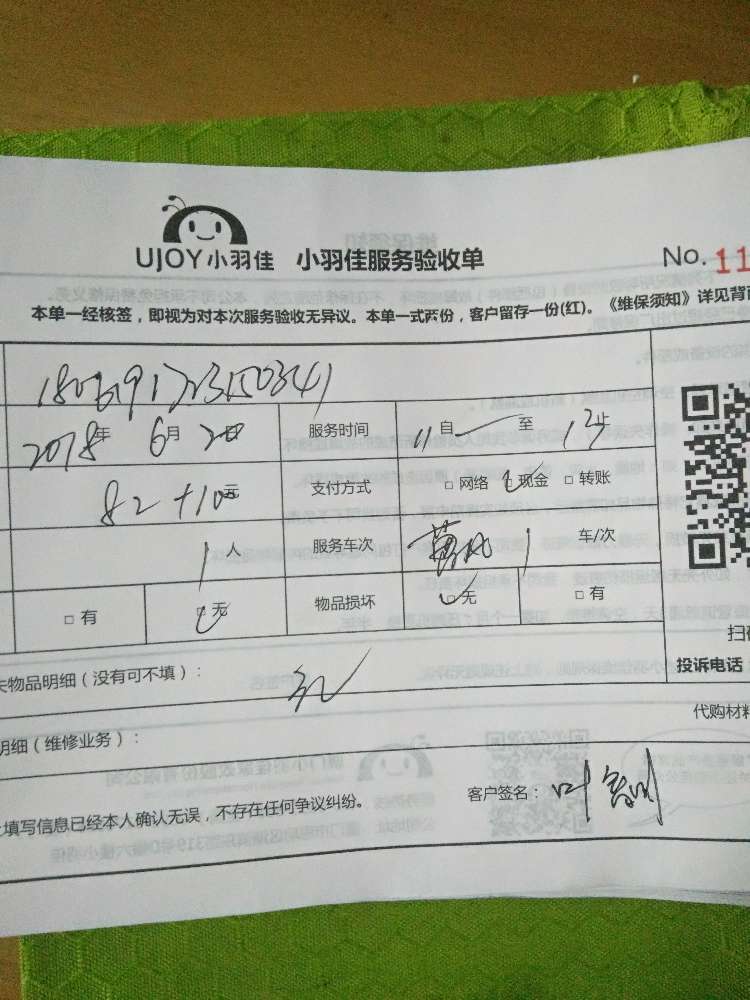 UJOY小羽佳 小羽佳服务验收单 No. 11
本单一经核签，即视为对本次服务验收无异议。本单一式两份，客户留存一份(红)。《维保须知》详见背
2018年 6月 20日 服务时间 11 自 至 13 止
82+10元 支付方式 □ 网络 □ 现金 □ 转账
1人 服务车次 1 车/次
□ 有 □ 无 物品损坏 □ 无 □ 有
扫
失物品明细（没有可不填）： 无 投诉电话
代购材料
明细（维修业务）：
上填写信息已经本人确认无误，不存在任何争议纠纷。 客户签名：